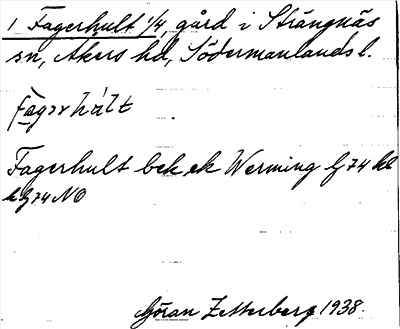 1 Fagerhult 1/4, gård i Strängnäs
sn, Åkers hd, Södermanlands l.
Fagerhult bek ek Werming bj 74
bj 74 NO
Göran Zetterberg 1938.